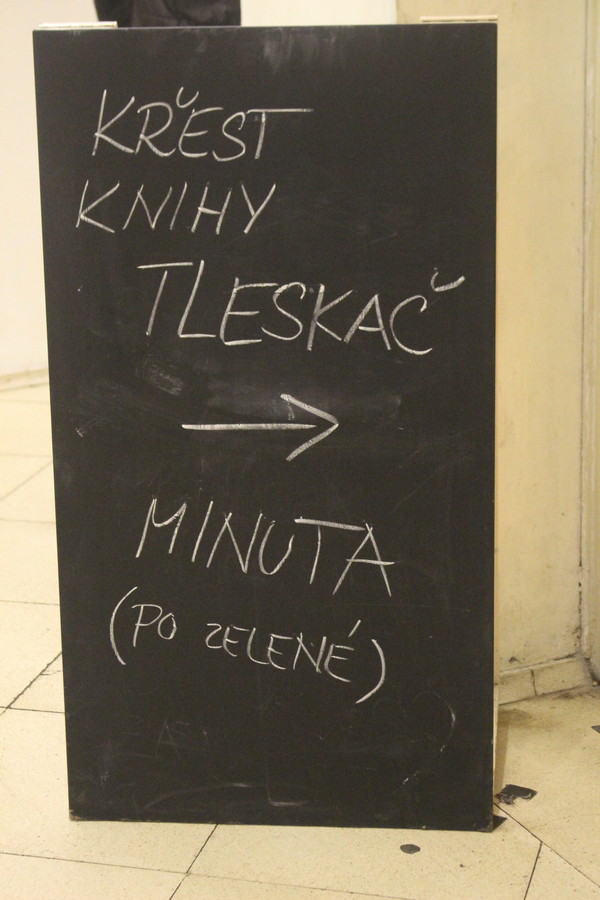 KŘEST
KNIHY
TLESKAČ
→
MINUTA
(PO ZELENÉ)